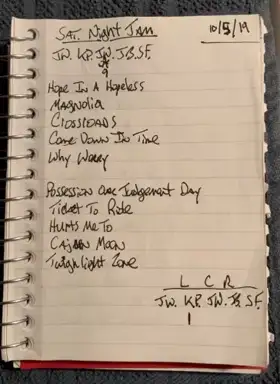 SAT. Night Jam
10/5/19
JW. KP. JW. JB. SF.
9
Hope In A Hopeless
Magnolia
Crossroads
Come Down In Time
Why Worry
Possession over Judgement Day
Ticket To Ride
Hurts Me To
Cajun Moon
Twighlight Zone
L C R
JW. KP. JW. JB. SF.
1